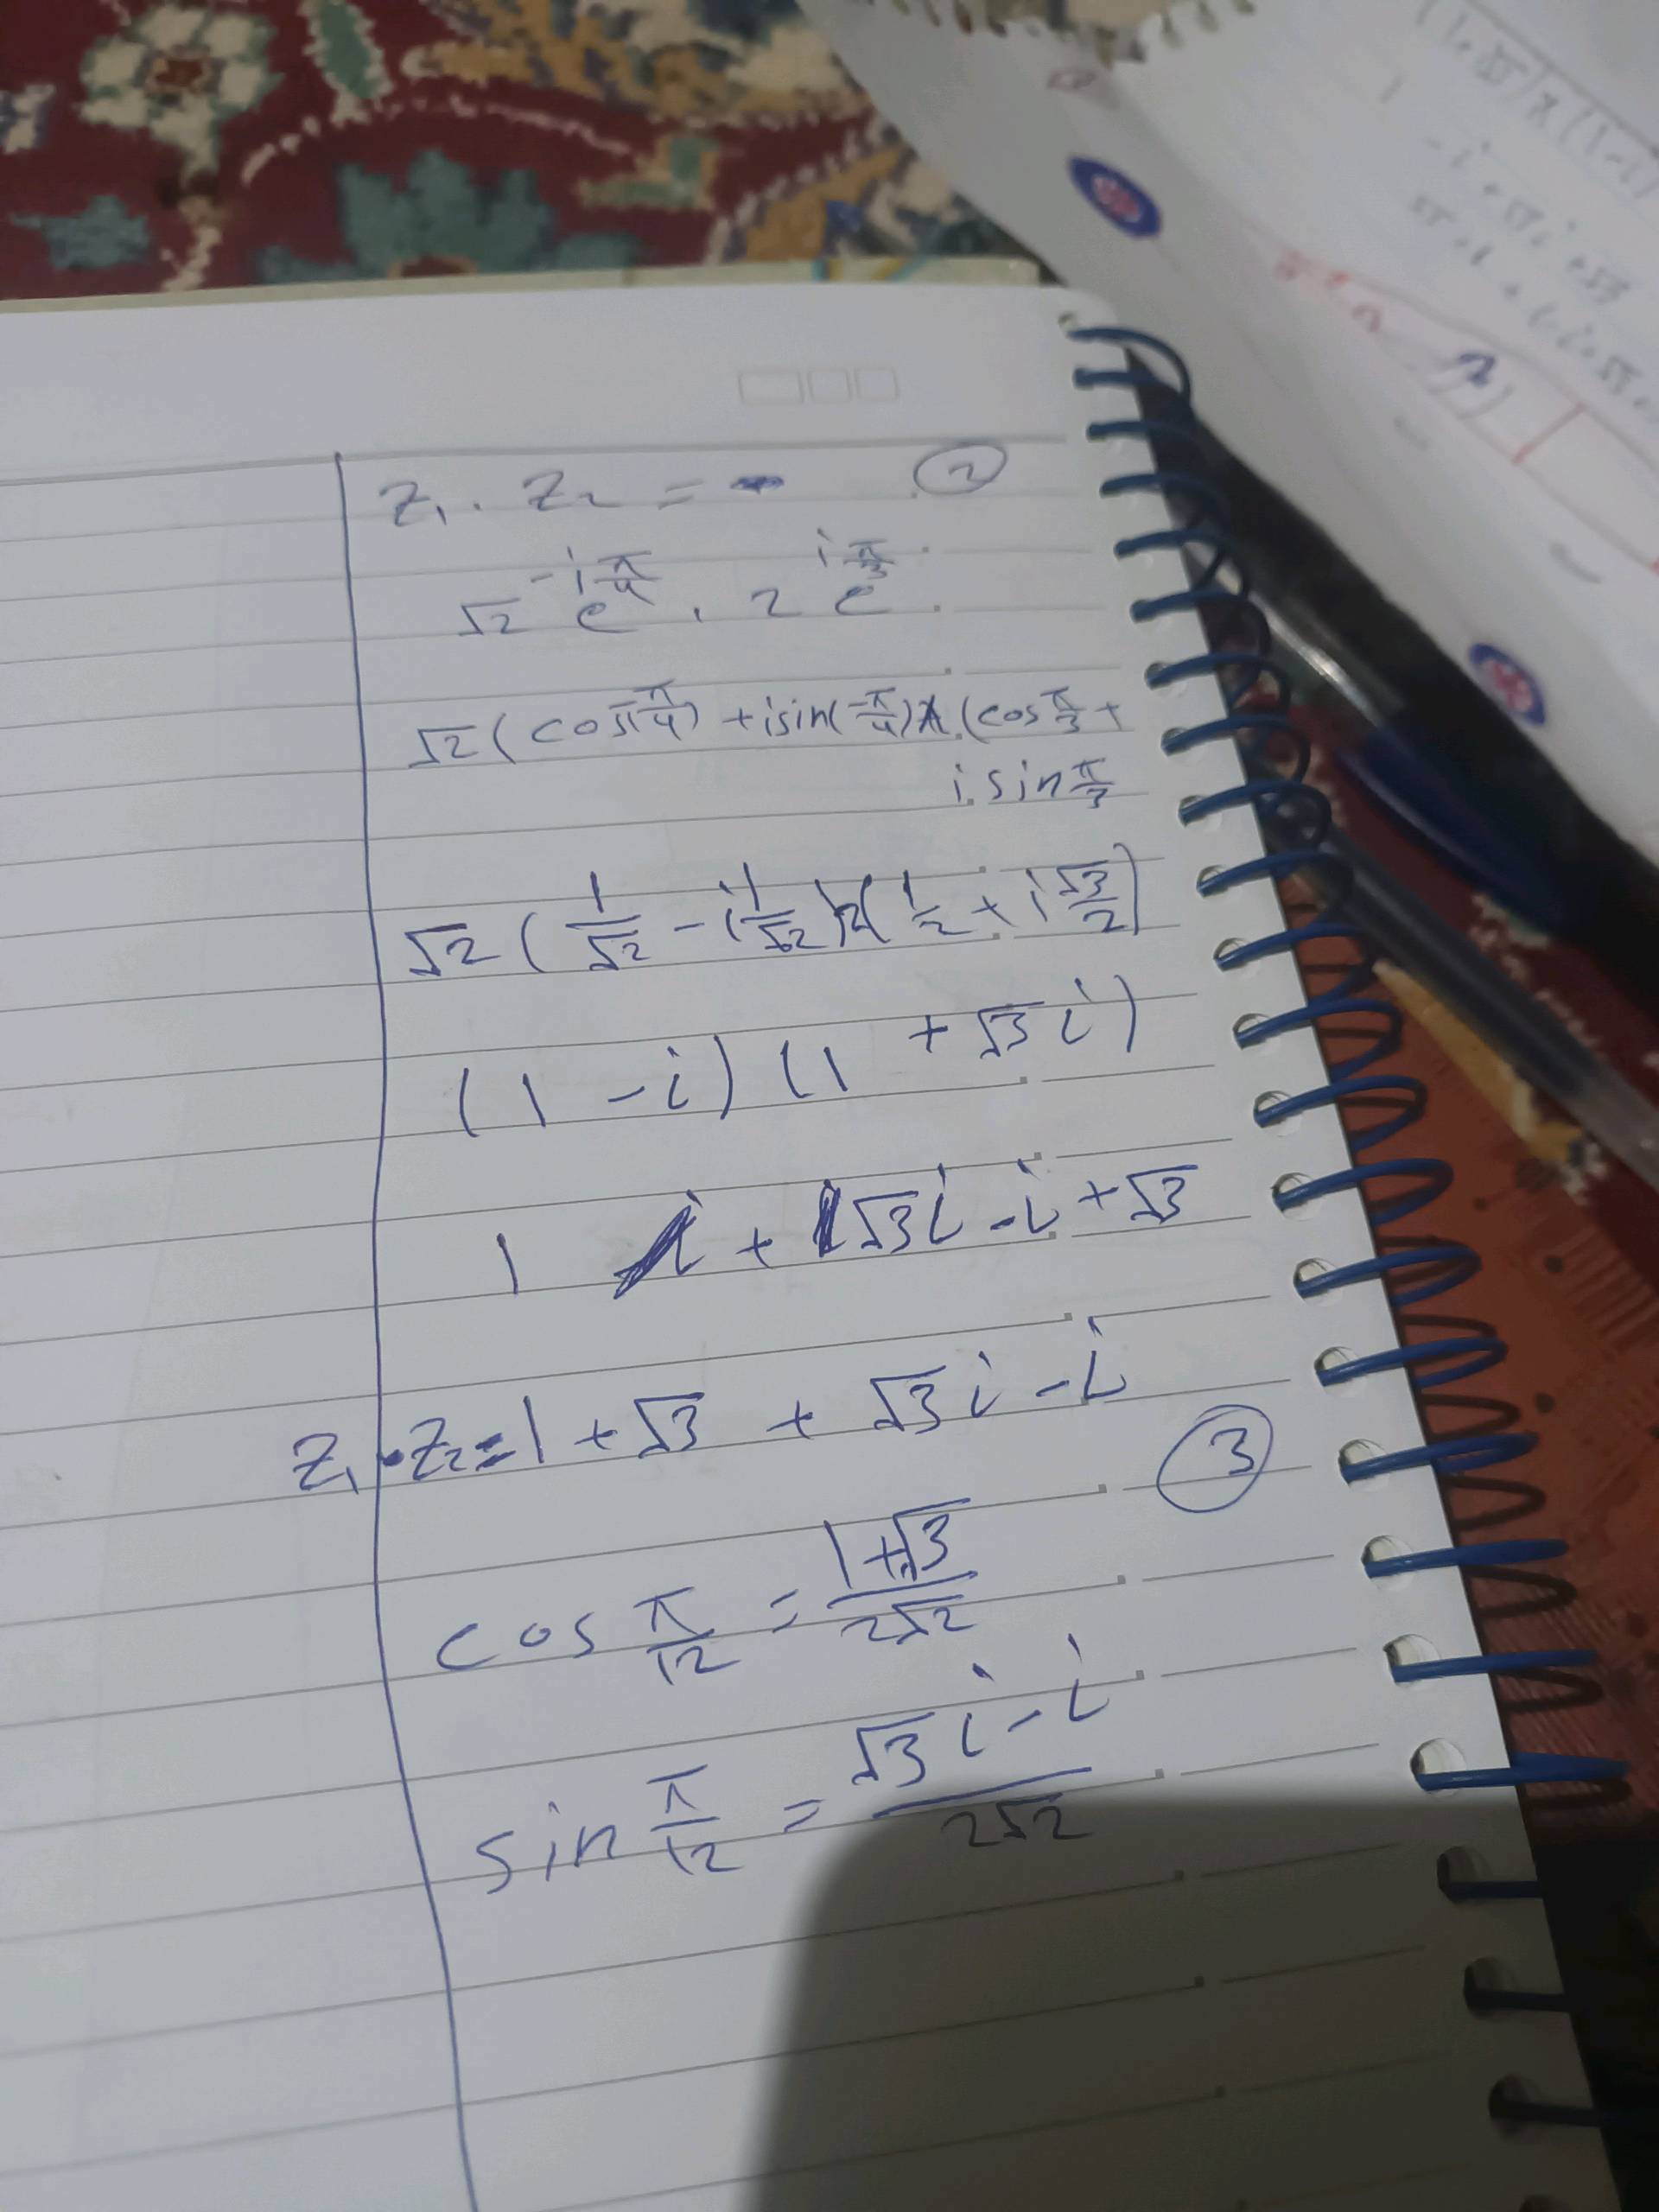 z₁ . z₂ =
②
√2 e^(-i π/4) . 2 e^(i π/3)
√2 ( cos(-π/4) + i sin(-π/4) ) . ( cos π/3 +
i sin π/3
√2 ( 1/√2 - i 1/√2 ) 2 ( 1/2 + i √3/2 )
(1 - i) (1 + √3 i)
1 + √3 i - i + √3
z₁ . z₂ = 1 + √3 + √3 i - i
③
cos π/12 = (1+√3)/(2√2)
sin π/12 = (√3 i - i)/(2√2)